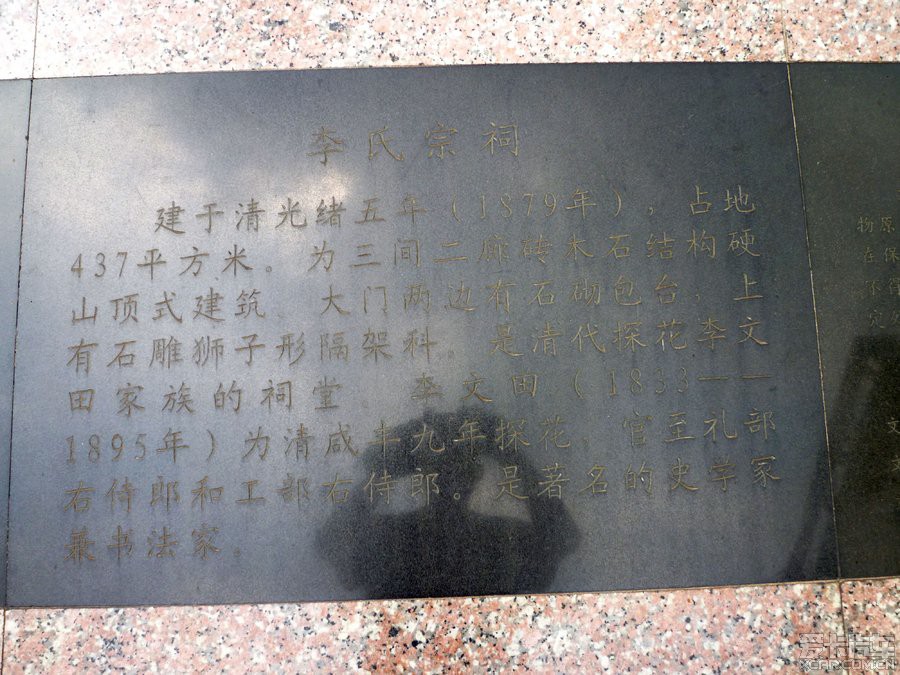 李氏宗祠
建于清光绪五年（1879年），占地
437平方米。为三间二廊砖木石结构硬
山顶式建筑。大门两边有石砌包台，上
有石雕狮子形隔架科。是清代探花李文
田家族的祠堂。李文田（1833——
1895年）为清咸丰九年探花，官至礼部
右侍郎和工部右侍郎。是著名的史学家
兼书法家。
物原
在保
不得
文
爱卡汽车
XCAR.COM.CN